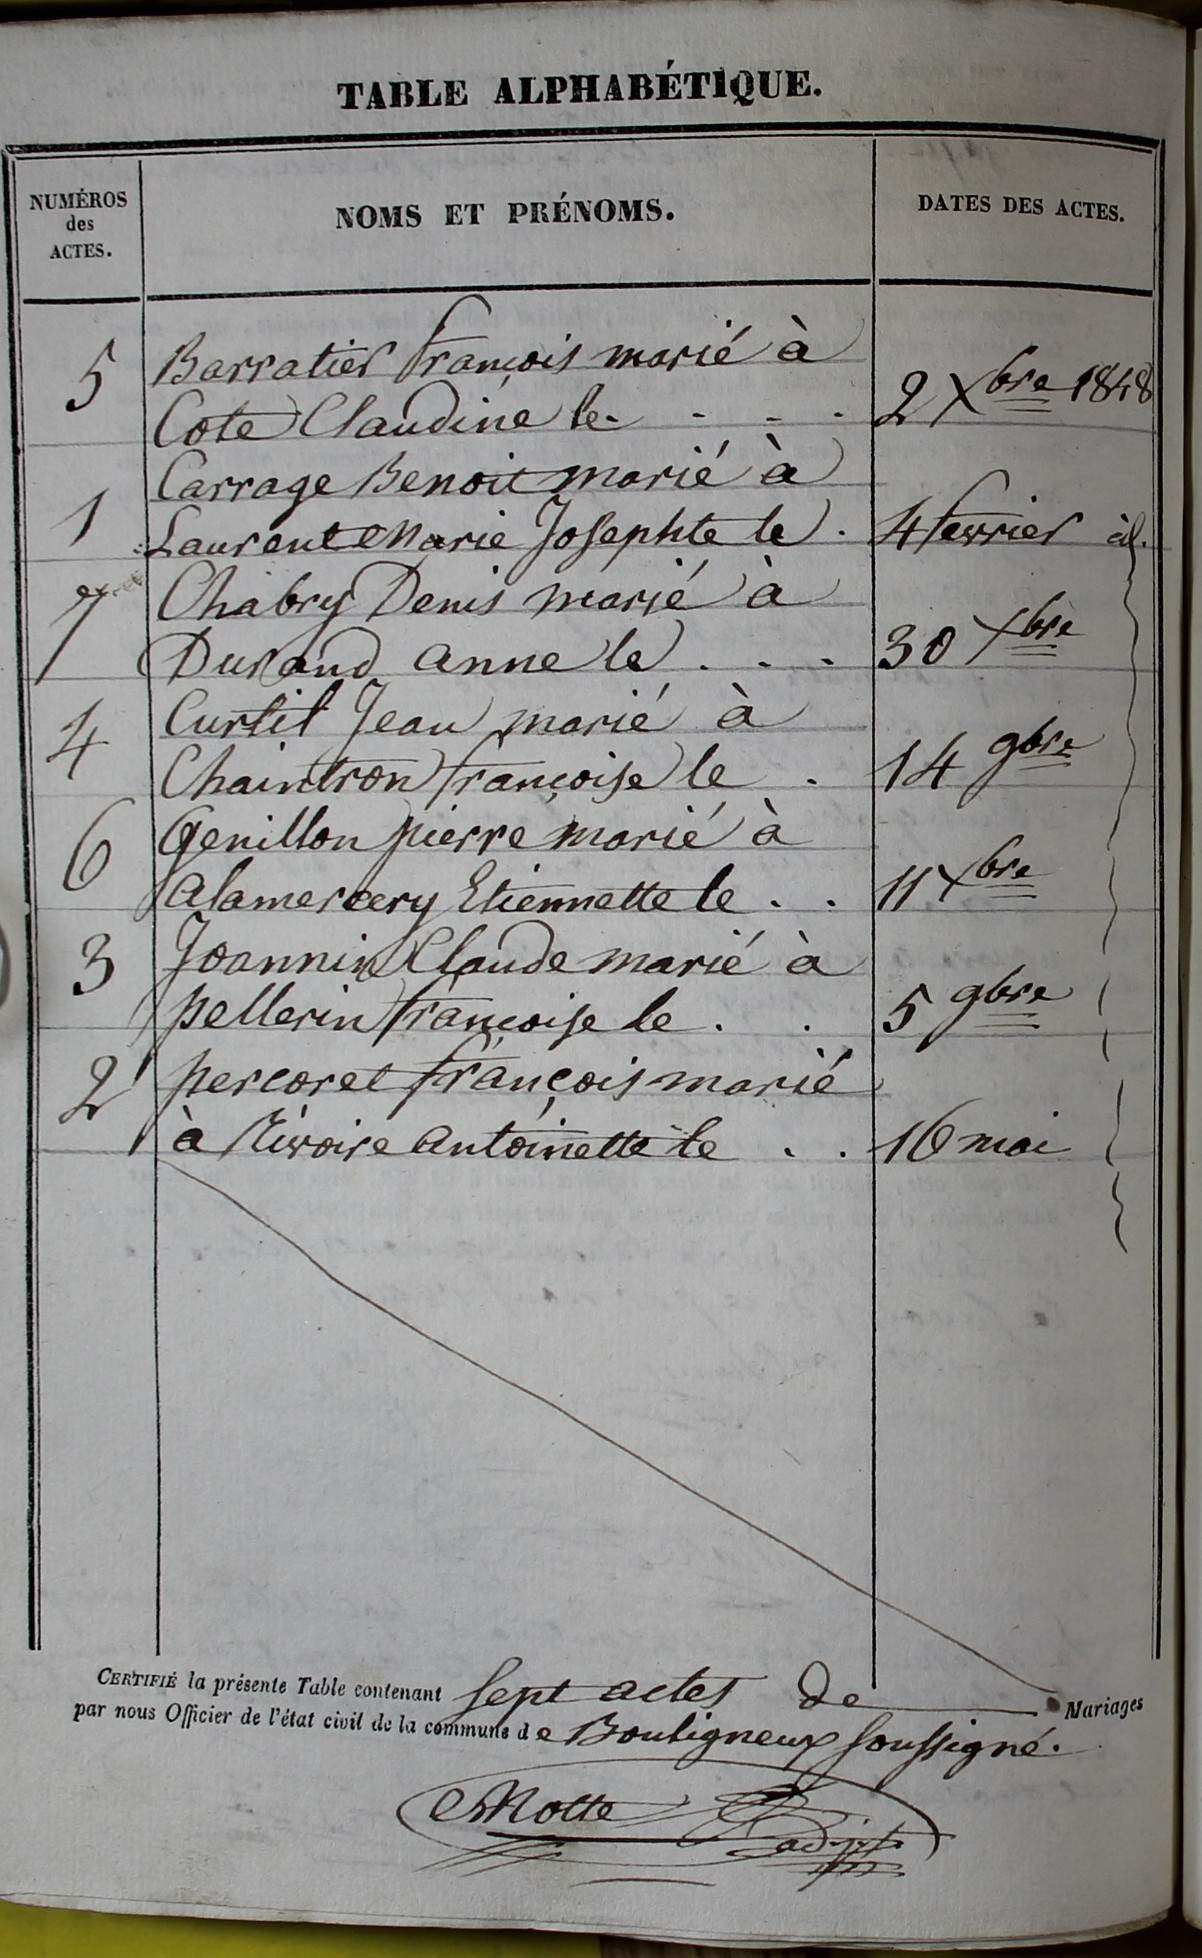 TABLE ALPHABÉTIQUE.
NUMÉROS des ACTES.
NOMS ET PRÉNOMS.
DATES DES ACTES.
5 Barratier françois marié à
Cote Claudine le. . . . 2 Xbre 1848
Carrage Benoit marié à
1 Laurent Marie Josephte le . 4 fevrier id.
Chabry Denis marié à
7 Durand anne le . . . 30 Xbre
Curtil Jean marié à
4 Chaintron françoise le . 14 9bre
6 Genillon pierre marié à
alamercery Etiennette le . . 11 Xbre
3 Joannin Claude marié à
pellerin françoise le . . 5 9bre
2 percoret françois marié
à Rivoire antoinette le . . 16 mai
CERTIFIÉ la présente Table contenant sept actes de Mariages
par nous Officier de l'état civil de la commune de Bouligneux soussigné.
Motte adjt